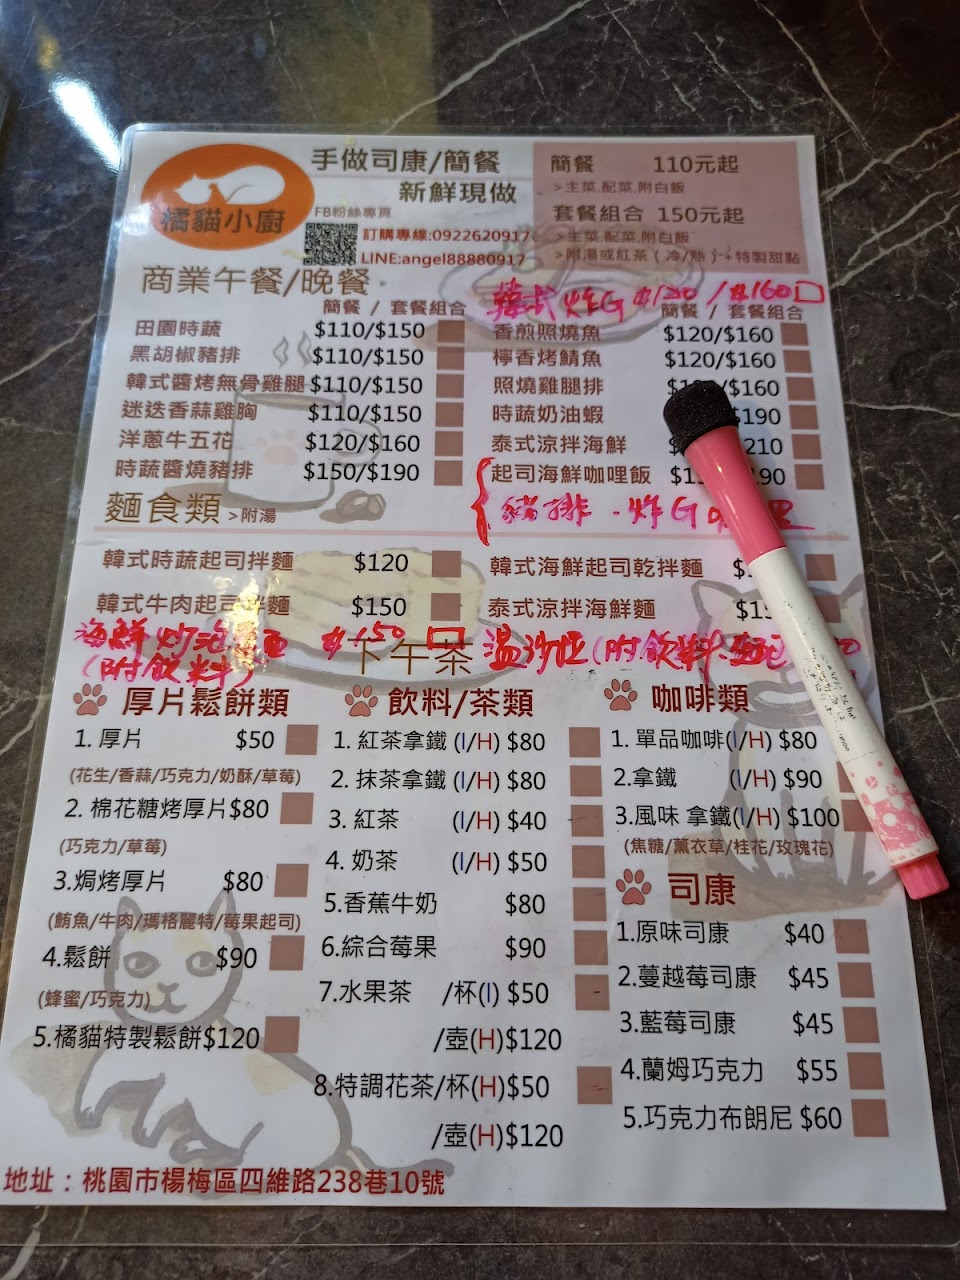 橘貓小廚
手做司康/簡餐
新鮮現做
FB粉絲專頁
訂購專線:0922620917
LINE:angel88880917
簡餐 110元起
>主菜.配菜.附白飯
套餐組合 150元起
>主菜.配菜.附白飯
>附湯或紅茶(冷/熱)+特製甜點
商業午餐/晚餐
韓式炸G $120/$160
簡餐 / 套餐組合
田園時蔬 $110/$150
黑胡椒豬排 $110/$150
韓式醬烤無骨雞腿 $110/$150
迷迭香蒜雞胸 $110/$150
洋蔥牛五花 $120/$160
時蔬醬燒豬排 $150/$190
簡餐 / 套餐組合
香煎照燒魚 $120/$160
檸香烤鯖魚 $120/$160
照燒雞腿排 /$160
時蔬奶油蝦 $190
泰式涼拌海鮮 210
起司海鮮咖哩飯 90
豬排.炸G
麵食類 >附湯
韓式時蔬起司拌麵 $120
韓式牛肉起司拌麵 $150
韓式海鮮起司乾拌麵
泰式涼拌海鮮麵
海鮮炒泡麵 $150
(附飲料)
溫沙拉(附飲料.麵包
下午茶
厚片鬆餅類
1. 厚片 $50
(花生/香蒜/巧克力/奶酥/草莓)
2. 棉花糖烤厚片 $80
(巧克力/草莓)
3.焗烤厚片 $80
(鮪魚/牛肉/瑪格麗特/莓果起司)
4.鬆餅 $90
(蜂蜜/巧克力)
5.橘貓特製鬆餅 $120
飲料/茶類
1. 紅茶拿鐵 (I/H) $80
2. 抹茶拿鐵 (I/H) $80
3. 紅茶 (I/H) $40
4. 奶茶 (I/H) $50
5.香蕉牛奶 $80
6.綜合莓果 $90
7.水果茶 /杯(I) $50
/壺(H)$120
8.特調花茶/杯(H)$50
/壺(H)$120
咖啡類
1. 單品咖啡(I/H) $80
2.拿鐵 (I/H) $90
3.風味 拿鐵(I/H) $100
(焦糖/薰衣草/桂花/玫瑰花)
司康
1.原味司康 $40
2.蔓越莓司康 $45
3.藍莓司康 $45
4.蘭姆巧克力 $55
5.巧克力布朗尼 $60
地址：桃園市楊梅區四維路238巷10號